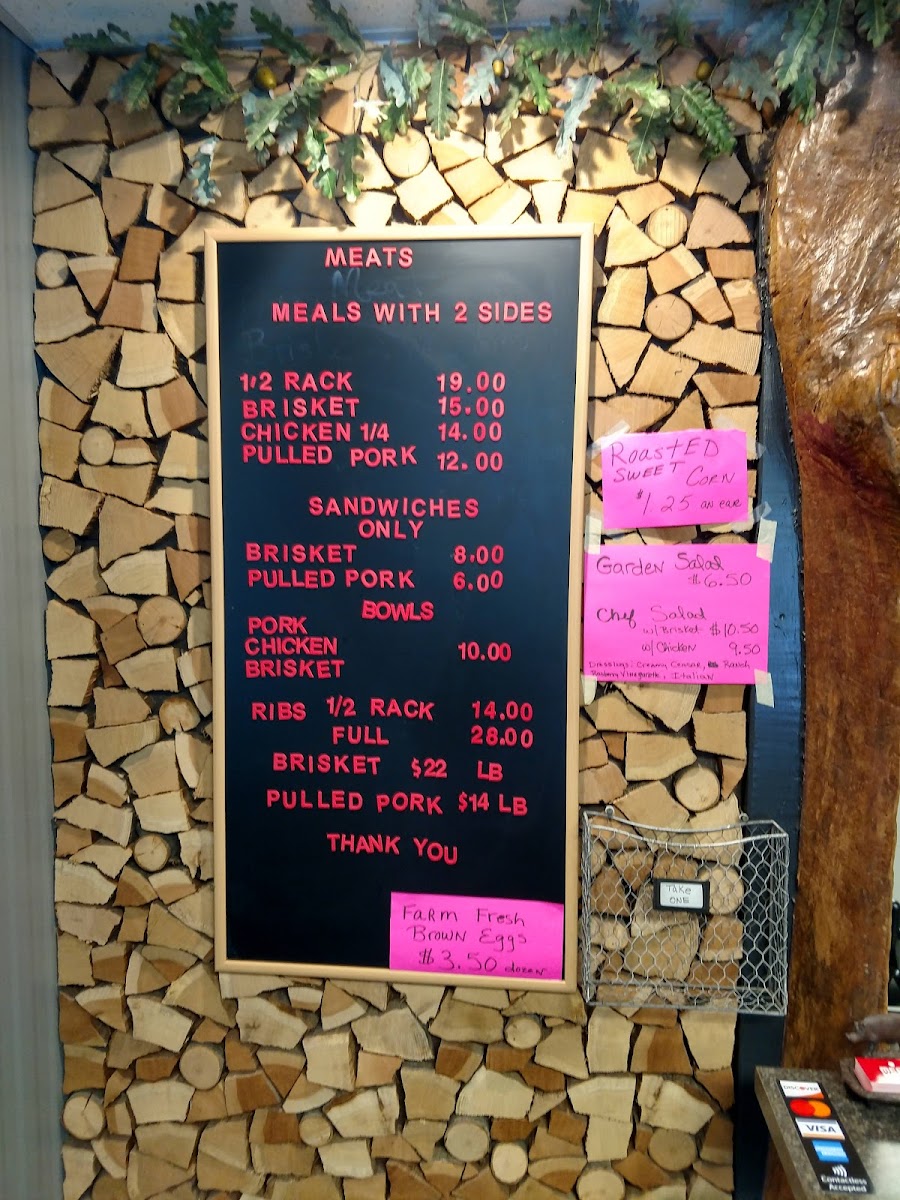 MEATS
MEALS WITH 2 SIDES
1/2 RACK 19.00
BRISKET 15.00
CHICKEN 1/4 14.00
PULLED PORK 12.00
SANDWICHES
ONLY
BRISKET 8.00
PULLED PORK 6.00
BOWLS
PORK
CHICKEN 10.00
BRISKET
RIBS 1/2 RACK 14.00
FULL 28.00
BRISKET $22 LB
PULLED PORK $14 LB
THANK YOU
FaRm Fresh
Brown Eggs
$3.50 dozen
RoastED
SWEET CORN
$1.25 an ear
Garden Salad
$6.50
Chef Salad
w/Brisket $10.50
w/ Chicken 9.50
Dressings: Creamy Ceasar, Ranch
Vinegarette, Italian
TAKE
ONE
DISCOVER
VISA
Contactless
Accepted